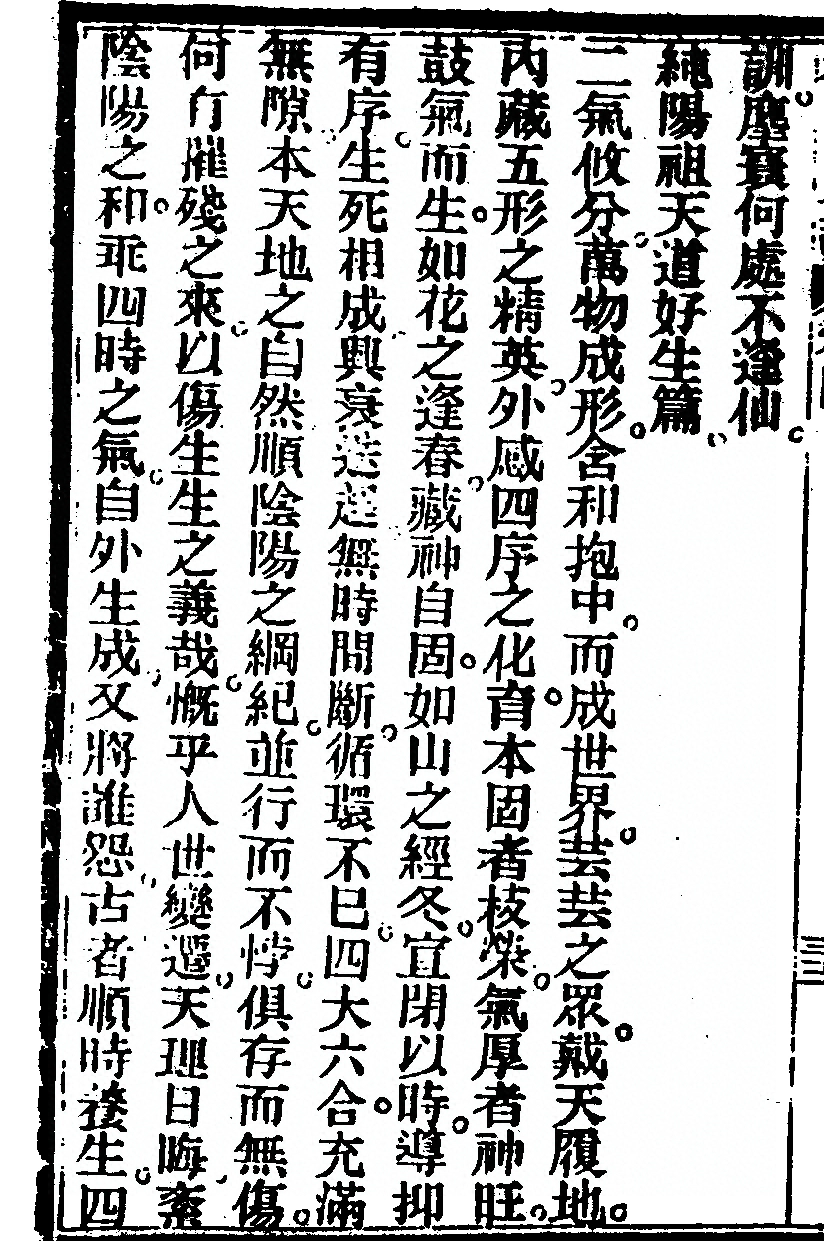 訓塵寰何處不逢仙。
純陽祖天道好生篇。
二氣攸分。萬物成形。含和抱中。而成世界。芸芸之眾。戴天履地。
內藏五形之精英。外感四序之化育。本固者枝榮。氣厚者神旺。
鼓氣而生。如花之逢春。藏神自固。如山之經冬。宜閉以時。導抑
有序。生死相成。興衰迭起。無時間斷。循環不已。四大六合。充滿
無隙。本天地之自然。順陰陽之綱紀。並行而不悖。俱存而無傷。
何有摧殘之來。以傷生生之義哉。慨乎人世變遷。天理日晦。紊
陰陽之和。乖四時之氣。自外生成。又將誰怨。古者順時養生。四